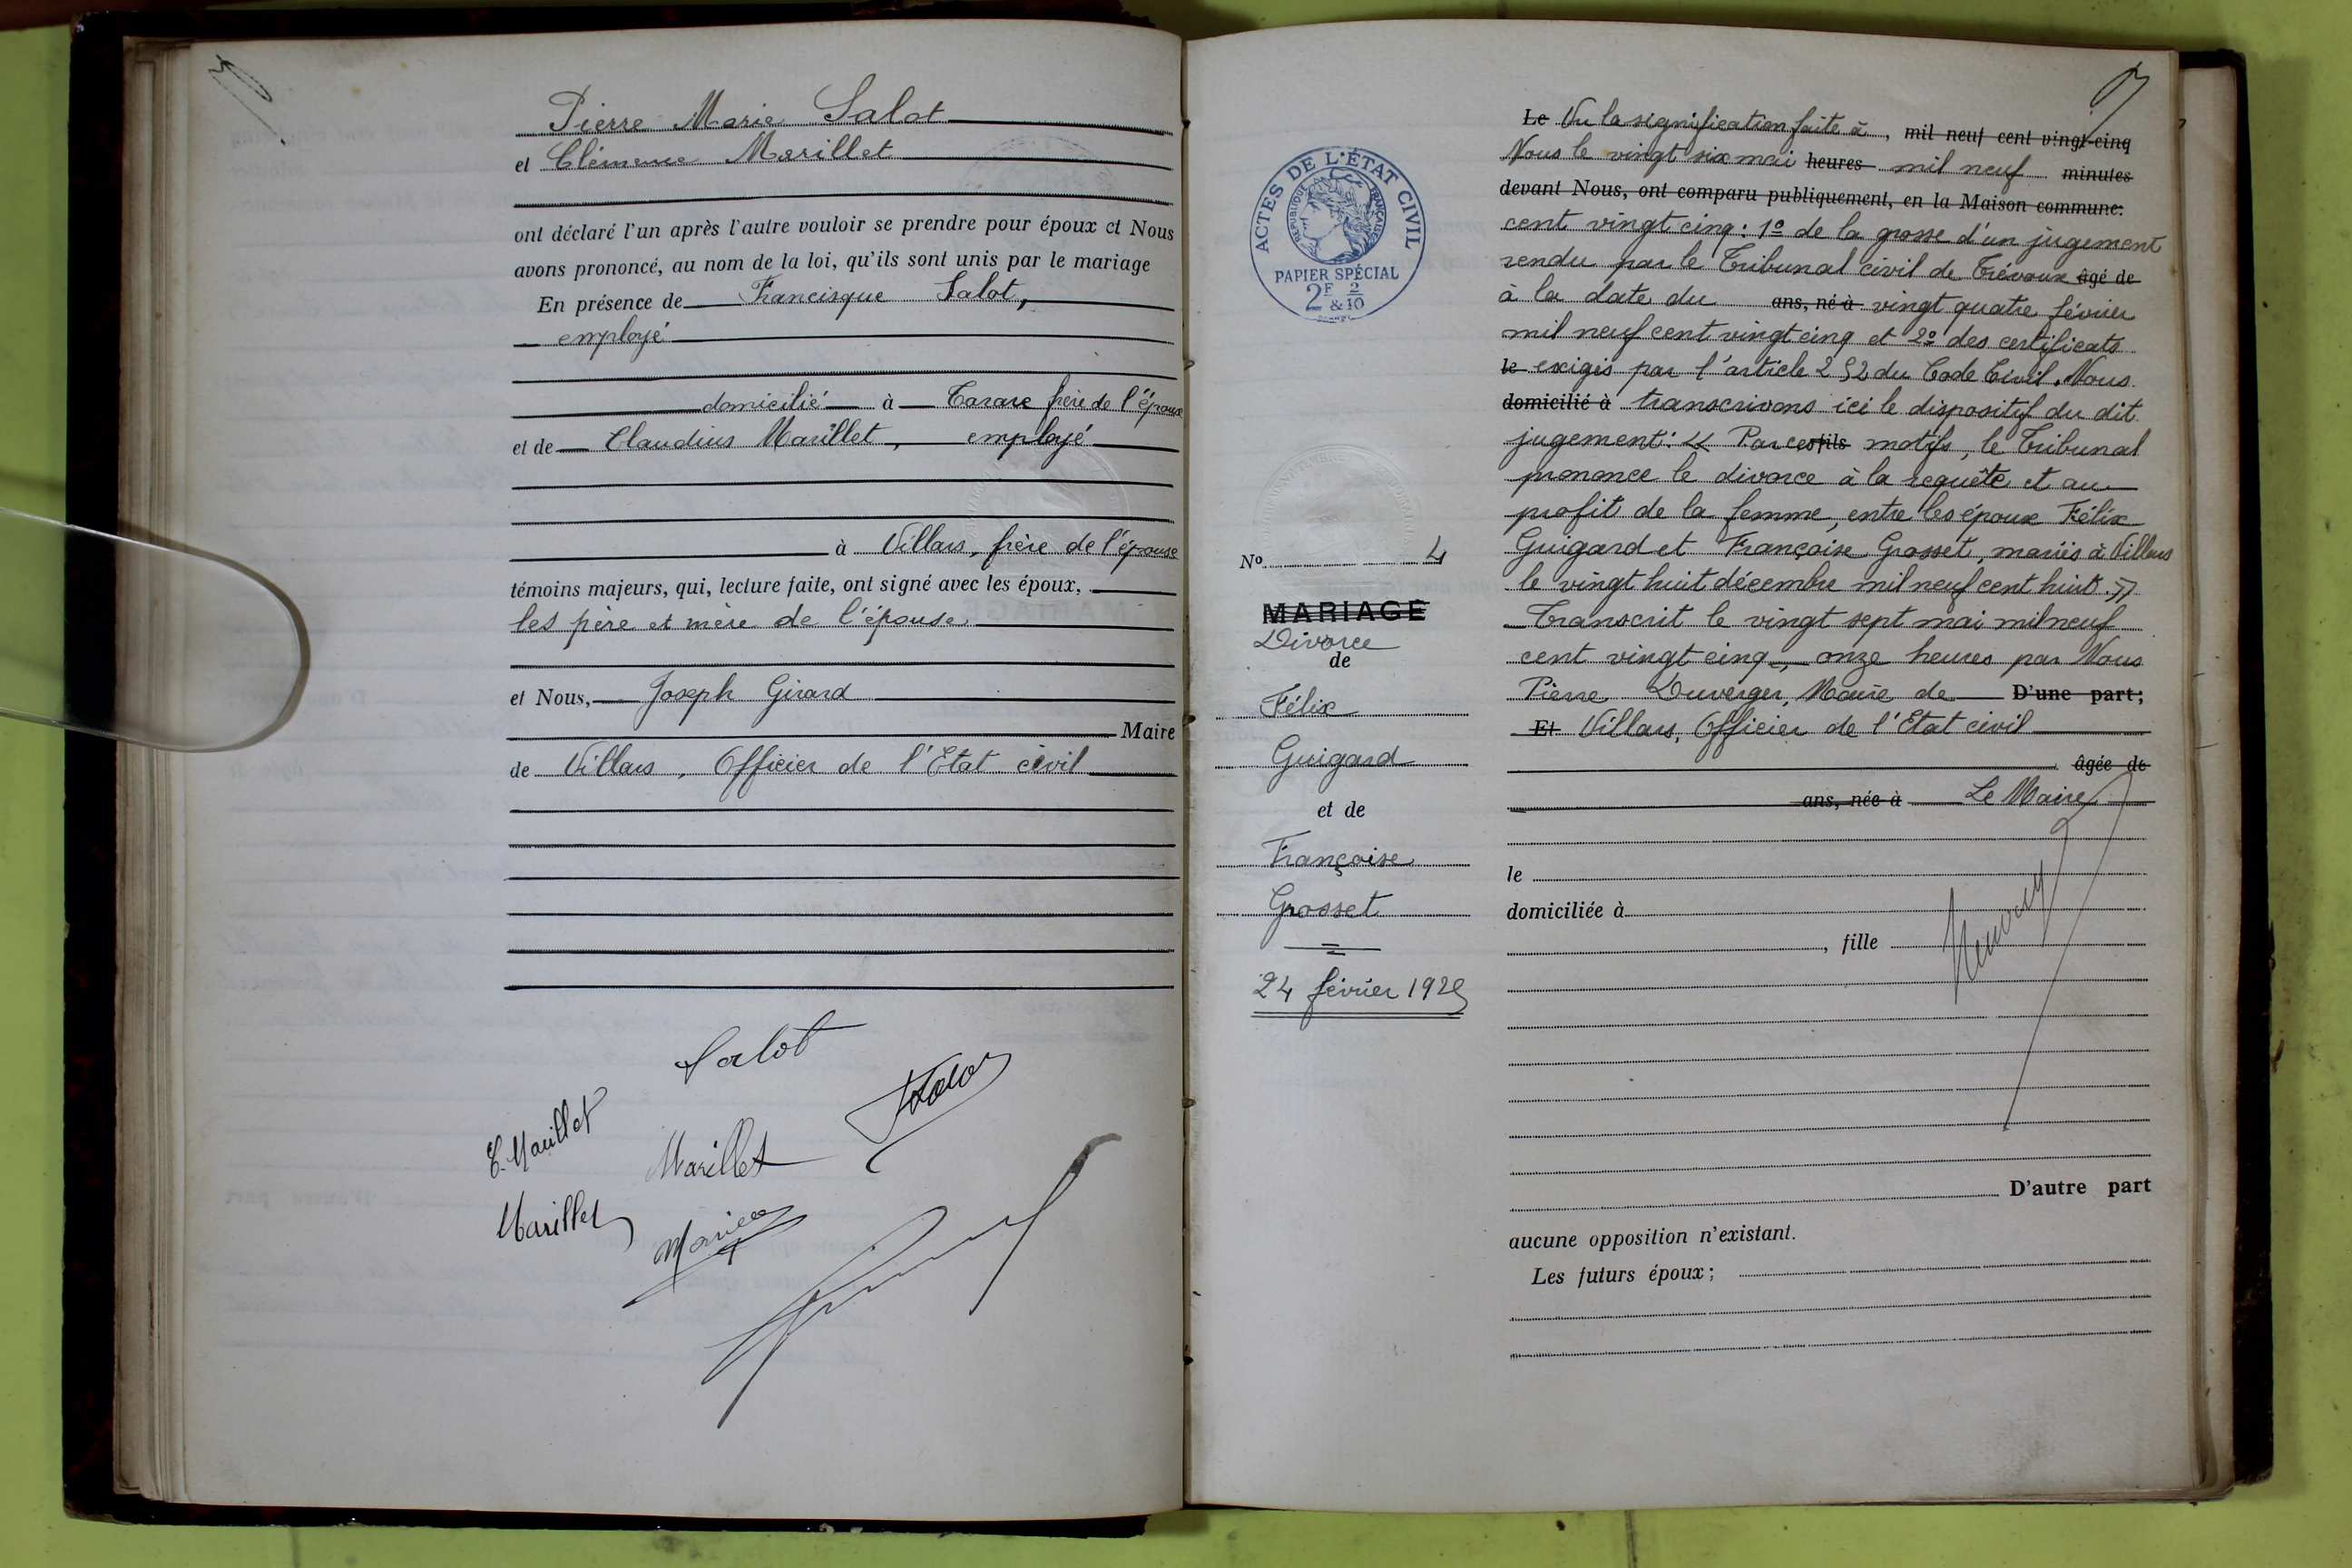 Pierre Marie Salot
et Clémence Marillet
ont déclaré l'un après l'autre vouloir se prendre pour époux et Nous
avons prononcé, au nom de la loi, qu'ils sont unis par le mariage
En présence de Francisque Salot,
employé
domicilié à Tarare frère de l'époux
et de Claudius Marillet, employé
à Villars, frère de l'épouse
témoins majeurs, qui, lecture faite, ont signé avec les époux,
les père et mère de l'épouse
et Nous, Joseph Girard
Maire
de Villars, Officier de l'Etat civil
Salot
C. Marillet
Marillet
Marillet
ACTES DE L'ÉTAT CIVIL
RÉPUBLIQUE FRANÇAISE
PAPIER SPÉCIAL
2F & 2/10
No 4
MARIAGE
Divorce
de
Félix
Guigard
et de
Françoise
Grosset
24 février 1925
Le Vu la signification faite à, mil neuf cent vingt-cinq
Nous le vingt six mai heures mil neuf minutes
devant Nous, ont comparu publiquement, en la Maison commune:
cent vingt cinq: 1º de la grosse d'un jugement
rendu par le Tribunal civil de Trévoux âgé de
à la date du ans, né à vingt quatre février
mil neuf cent vingt cinq et 2º des certificats
le exigés par l'article 252 du Code Civil. Nous
domicilié à transcrivons ici le dispositif du dit
jugement: « Par ces fils motifs, le Tribunal
prononce le divorce à la requête et au
profit de la femme, entre les époux Félix
Guigard et Françoise Grosset, mariés à Villars
le vingt huit décembre mil neuf cent huit. »
Transcrit le vingt sept mai mil neuf
cent vingt cinq, onze heures par Nous
Pierre Duverger, Maire de D'une part;
Et Villars, Officier de l'Etat civil
âgée de
ans, née à Le Maire
le
domiciliée à
, fille
D'autre part
aucune opposition n'existant.
Les futurs époux;